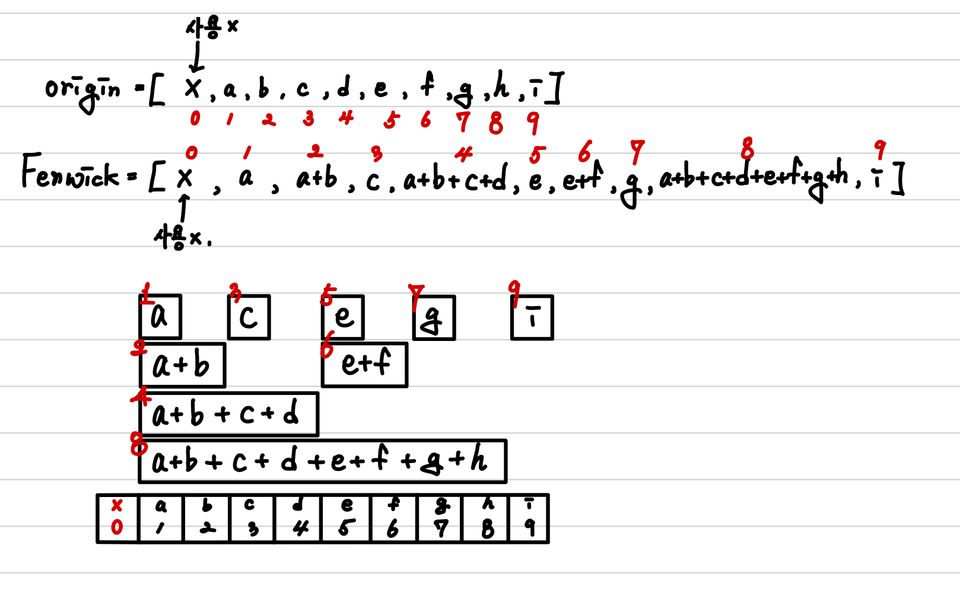 사용x
origin = [ X, a, b, c, d, e, f, g, h, i ]
0 1 2 3 4 5 6 7 8 9
0 1 2 3 4 5 6 7 8 9
Fenwick = [ X, a, a+b, c, a+b+c+d, e, e+f, g, a+b+c+d+e+f+g+h, i ]
사용x.
1 3 5 7 9
a c e g i
2 6
a+b e+f
4
a+b+c+d
8
a+b+c+d+e+f+g+h
x a b c d e f g h i
0 1 2 3 4 5 6 7 8 9